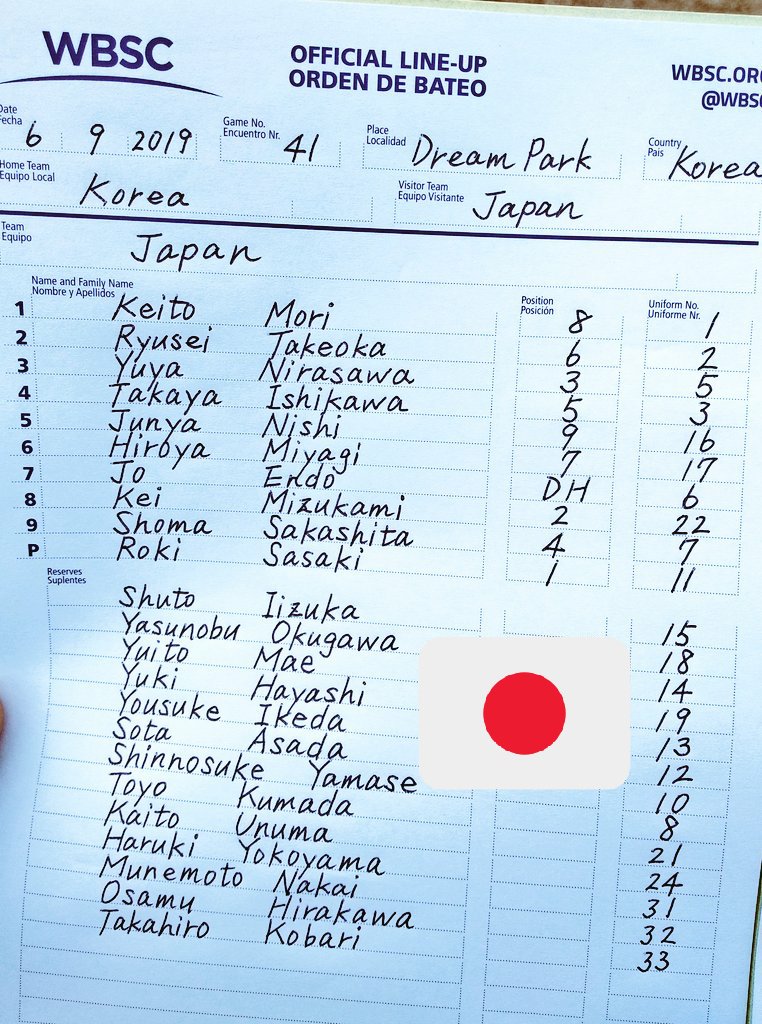 WBSC
OFFICIAL LINE-UP
ORDEN DE BATEO
WBSC.ORG
@WBSC
Date
Fecha
6 9 2019
Game No.
Encuentro Nr.
41
Place
Localidad
Dream Park
Country
País
Korea
Home Team
Equipo Local
Korea
Visitor Team
Equipo Visitante
Japan
Team
Equipo
Japan
Name and Family Name
Nombre y Apellidos
Position
Posición
Uniform No.
Uniforme Nr.
1 Keito Mori 8 1
2 Ryusei Takeoka 6 2
3 Yuya Nirasawa 3 5
4 Takaya Ishikawa 5 3
5 Junya Nishi 9 16
6 Hiroya Miyagi 7 17
7 Jo Endo DH 6
8 Kei Mizukami 2 22
9 Shoma Sakashita 4 7
P Roki Sasaki 1 11
Reserves
Suplentes
Shuto Iizuka 15
Yasunobu Okugawa 18
Yuito Mae 14
Yuki Hayashi 19
Yousuke Ikeda 13
Sota Asada 12
Shinnosuke Yamase 10
Toyo Kumada 8
Kaito Unuma 21
Haruki Yokoyama 24
Munemoto Nakai 31
Osamu Hirakawa 32
Takahiro Kobari 33